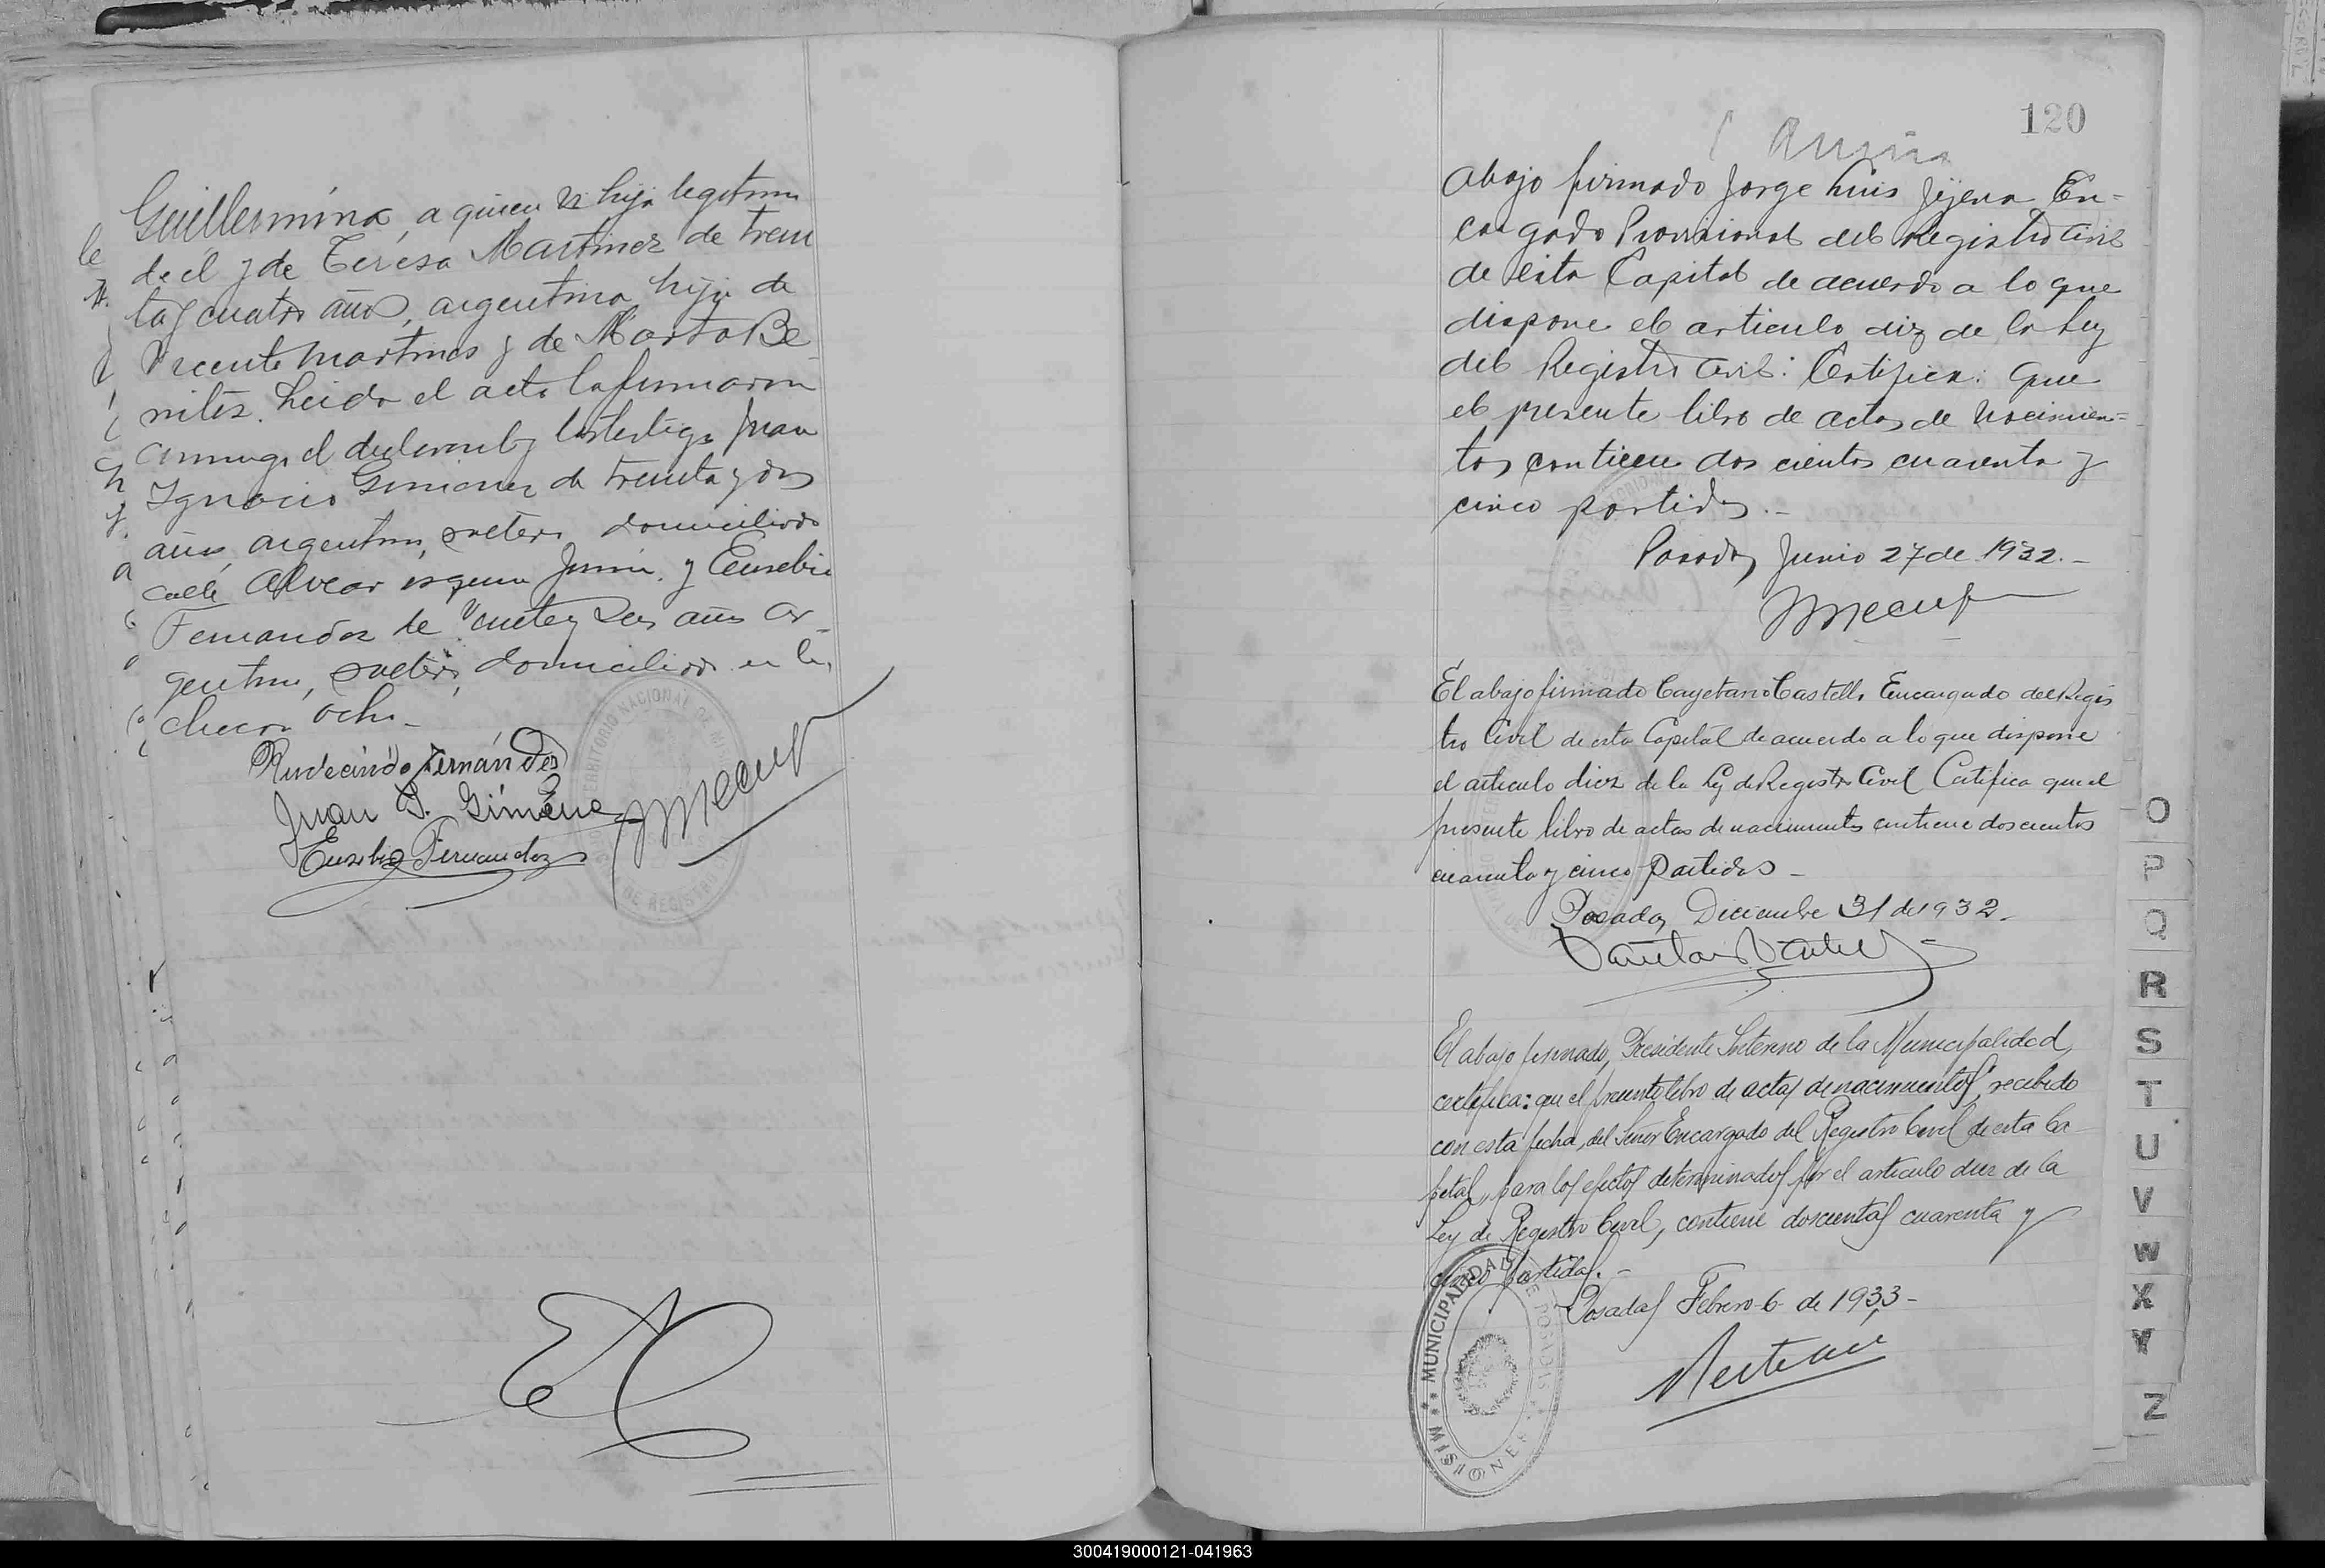 Guillermina, a quien es hija legitima
de él y de Teresa Martinez de trein
ta y cuatro años, argentina, hija de
Vicente Martines y de Marta Be
nites. Leida el acta la firmaron
conmigo el declarante y los testigos Juan
Ignacio Gimenez de treinta y dos
años, argentino, soltero, domiciliado
calle Alvear esquina Junin, y Eusebio
Fernandez de veinte y seis años ar-
gentino, soltero, domiciliado en la
chacra ocho-
Rudecindo Fernández
Juan I. Giménez
Eusebio Fernandez
TERRITORIO NACIONAL DE MI
DE REGISTRO
120
Abajo firmado Jorge Luis Jijena En-
cargado Provisional del Registro Civil
de esta Capital de acuerdo a lo que
dispone el articulo diez de la Ley
del Registro Civil: Certifica: Que
el presente libro de actas de Nacimien=
tos contiene dos cientos cuarenta y
cinco partidas.-
Posadas, Junio 27 de 1932.-
El abajo firmado Cayetano Castelli Encargado del Regis
tro Civil de esta Capital de acuerdo a lo que dispone
el articulo diez de la Ley de Registro Civil Certifica que el
presente libro de actas de nacimientos contiene doscientos
cuarenta y cinco partidas-
Posadas, Diciembre 31 de 1932-
El abajo firmado, Presidente Interino de la Municipalidad,
certifica: que el presente libro de actas de nacimientos, recibido
con esta fecha, del Señor Encargado del Registro Civil de esta Ca
pital, para los efectos determinados por el articulo diez de la
Ley de Registro Civil, contiene doscientas cuarenta y
cinco partidas.-
Posadas Febrero 6 de 1933-
MUNICIPALIDAD DE POSADAS
MISIONES
O
P
Q
R
S
T
U
V
W
X
Y
Z
300419000121-041963